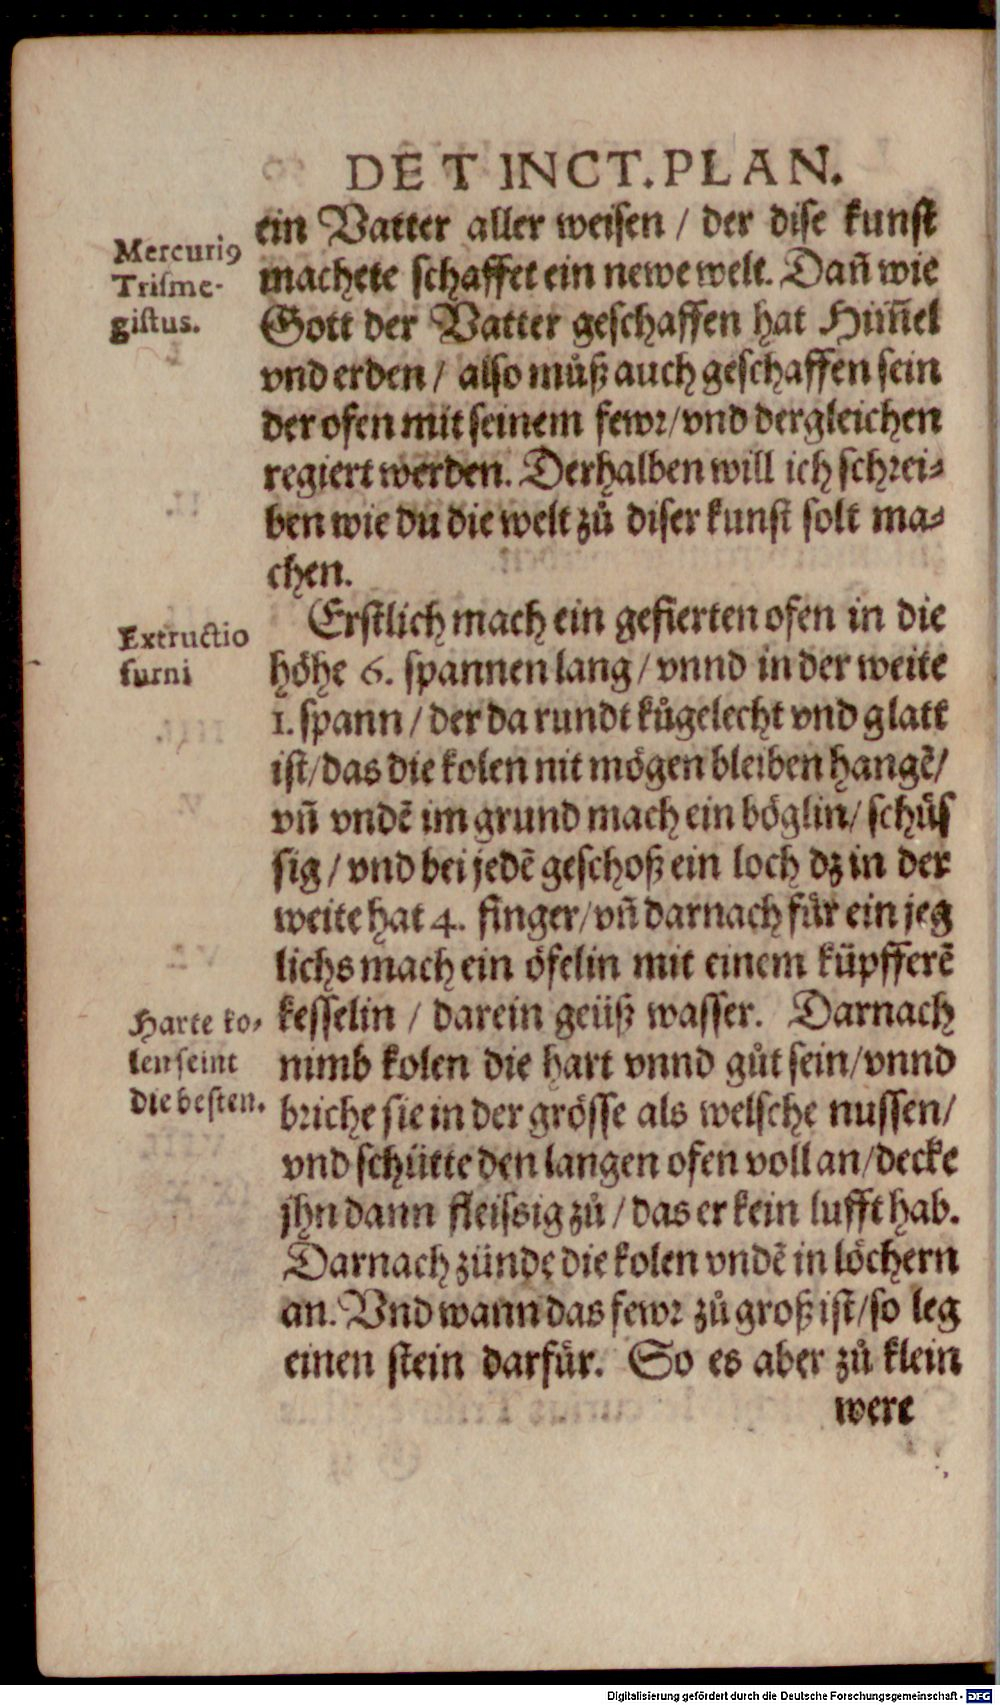 DE TINCT. PLAN.
ein Vatter aller weisen / der dise kunst
Mercuriꝰ
Trisme-
gistus.
machete schaffet ein newe welt. Dañ wie
Gott der Vatter geschaffen hat Him̃el
vnd erden / also muͦß auch geschaffen sein
der ofen mit seinem fewꝛ / vnd dergleichen
regiert werden. Derhalben will ich schꝛei-
ben wie du die welt zuͦ diser kunst solt ma-
chen.
Erstlich mach ein gefierten ofen in die
Extructio
furni
hoͤhe 6. spannen lang / vnnd in der weite
1. spann / der da rundt kuͤgelecht vnd glatt
ist / das die kolen nit moͤgen bleiben hangẽ /
vñ vndẽ im grund mach ein boͤglin / schuͤs
sig / vnd bei jedẽ geschoß ein loch dz in der
weite hat 4. finger / vñ darnach fuͤr ein jeg
lichs mach ein oͤfelin mit einem küpfferẽ
Harte ko-
len seint
die besten.
kesselin / darein geüß wasser. Darnach
nimb kolen die hart vnnd guͦt sein / vnnd
bꝛiche sie in der groͤsse als welsche nussen /
vnd schütte den langen ofen voll an / decke
jhn dann fleissig zuͦ / das er kein lufft hab.
Darnach zünde die kolen vndẽ in loͤchern
an. Vnd wann das fewꝛ zuͦ groß ist / so leg
einen stein darfuͤr. So es aber zuͦ klein
were
Digitalisierung gefördert durch die Deutsche Forschungsgemeinschaft - DFG